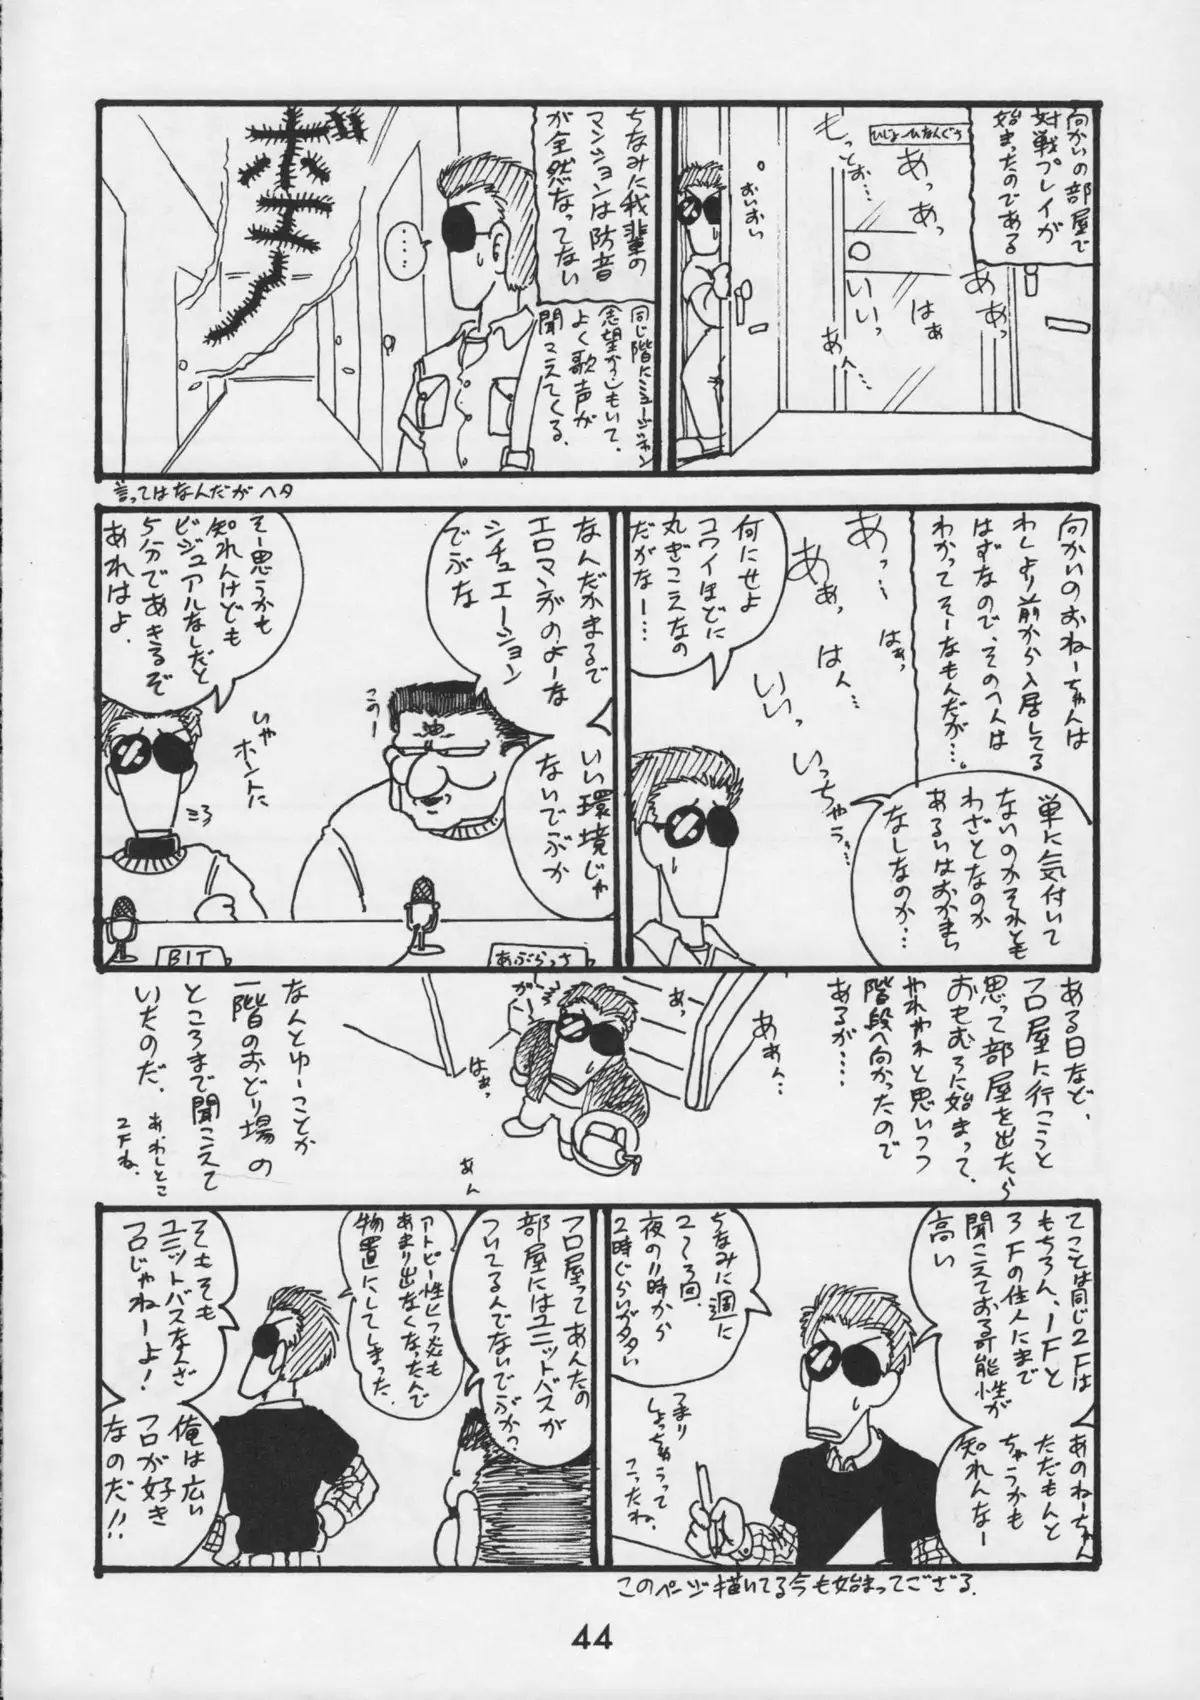 向かいの部屋で
対戦プレイが
始まったのである
ひじょーひなんぐち
もっとぉ…
あっ
あっ
あぁっ
はぁ
いいっ
あん…
おいおい
ちなみに我輩の
マンションは防音
が全然なってない
同じ階にミュージシャン
志望かなんかもいて、
よく歌声が
聞こえてくる。
……
言ってはなんだが ヘタ
向かいのおねーちゃんは
わしより前から入居してる
はずなので、その人は
わかってそーなもんだが…。
単に気付いて
ないのかそれとも
わざとなのか
あるいはおかまい
なしなのか…
あっ…
はぁっ
あぁっ
はん…
いいっ
いっちゃう…
何にせよ
コワイほどに
丸ぎこえなの
だがな……
なんだかまるで
エロマンガのよーな
シチュエーション
でぶな
いい環境じゃ
ないでぶか
そー思うかも
知れんけども
ビジュアルなしだと
5分であきるぞ
あれはよ.
このー
いや
ホントに
油
BIT
あぶらっさ
ある日など、
フロ屋に行こうと
思って部屋を出たら
おもむろに始まって、
やれやれと思いつつ
階段へ向かったので
あるが……
あぁん…
あっ
はぁっ
あん
なんとゆーことか
一階のおどり場の
ところまで聞こえて
いたのだ。
あ、わしとこ
2Fね.
てことは同じ2Fは
もちろん、1Fと
3Fの住人にまで
聞こえておる可能性が
高い
あのねーちゃん
ただもんと
ちゃうかも
知れんなー
ちなみに週に
2〜3回、
夜の11時から
2時ぐらいがタタい
つまり
しょっちゅうって
こったね.
このページ描いてる今も始まってござる.
フロ屋ってあんたの
部屋にはユニットバスが
ついてるんでないでぶか?
アトピー性ヒフ炎も
あまり出なくなったんで
物置にしてしまった.
そもそも
ユニットバスなんざ
フロじゃねーよ!
俺は広い
フロが好き
なのだ!!
44